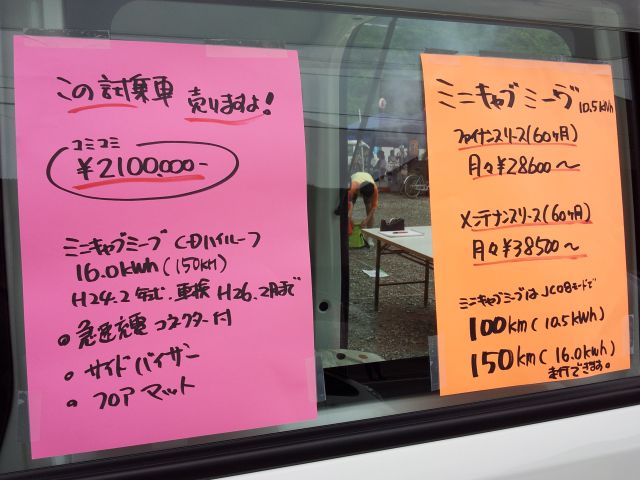 この試乗車
売りますよ!
コミコミ
¥2100,000-
ミニキャブミーブ CDハイルーフ
16.0kwh (150km)
H24.2 登録、車検 H26.2月まで
急速充電コネクター付
サイドバイザー
フロアマット
ミニキャブ ミーブ 10.5kwh
ファイナンスリース(60ヶ月)
月々¥28600〜
メンテナンスリース(60ヶ月)
月々¥38500〜
ミニキャブミーブは JC08モードで
100km (10.5kwh)
150km (16.0kwh)
走行できます。